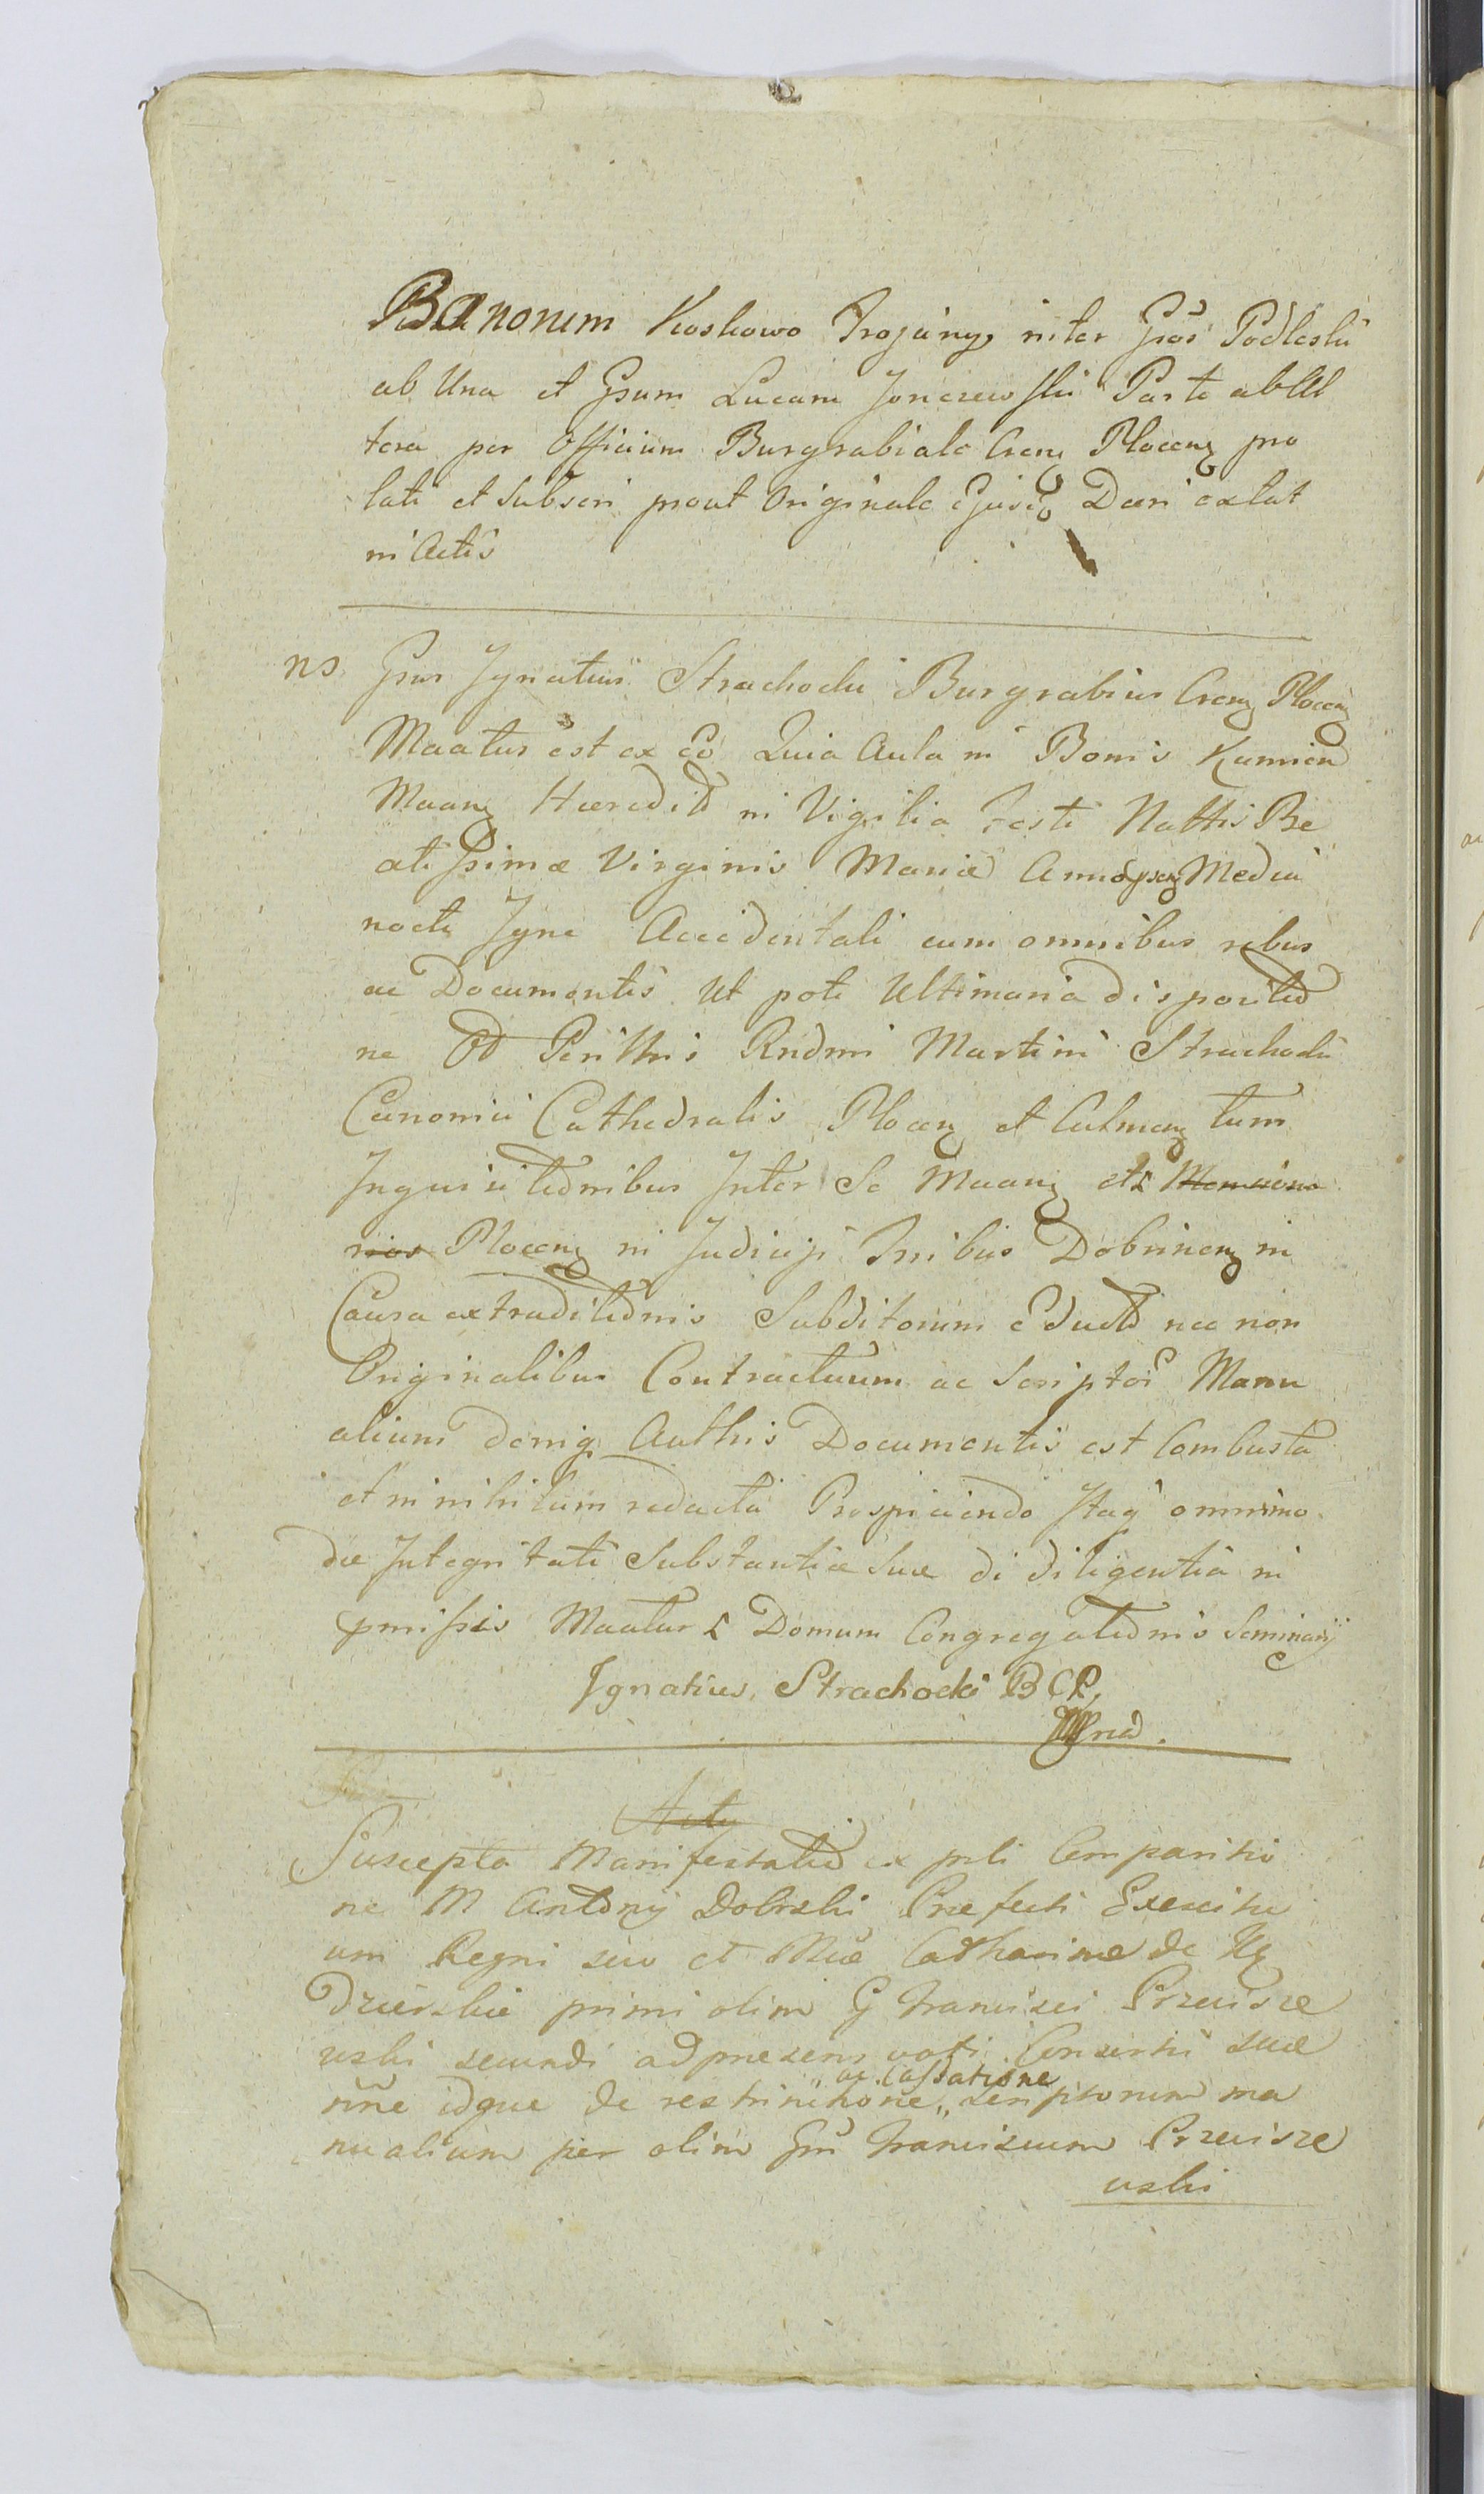 Bonorum Koskowo Trojany inter Gsos Podleski
ab Una et Gsum Lucam Jonczewski Parte ab Ul
tera per Officium Burgrabiale Cren Plocen pro
lati et Subscri prout Originale Ejusd Dcri extat
in Actis
ns Gsus Ignatius Strachocki Burgrabius Cren Plocen
Maatus est ex Eo Quia Aula in Bonis Kamien
Maan Haeredit in Vigilia Festi Nattis Be
atissimae Virginis Mariae Anni Media
nocte Igne Accidentali cum omnibus rebus
ac Documentis Ut pote Ultimaria dispositio
ne Od Perillris Rndmi Martini Strachocki
Canonici Cathedralis Plocen et Culmen tum
Inquisitionibus Inter Se Maan et Mansiona
rios Plocen in Judicys Trribus Dobrinen in
Causa extraditionis Subditorum educt nec non
Originalibus Contractuum ac Scriptor Manu
alium deniq Authis Documentis est Combusta
et in nihilum redacta Prospiciendo Itaq omnimo
dae Integritati Substantiae Suae di diligentia in
pmissis Maatur Domum Congregationis Seminary
Ignatius Strachocki B C P,
Suscepta Manifestatio ex psli Comparitio
ne M Antony Dobrski Praefecti Exercitu
um Regni seu et Mae Catharinae de
Dzierskie primi olim G Francisci Przecisze
wski secundi ad praesens voti Consortis suae
ac Cassatione
nne idque de restrinctione „ scriptorum ma
nualium per olim Gsu Franciscum Przecisze
wski